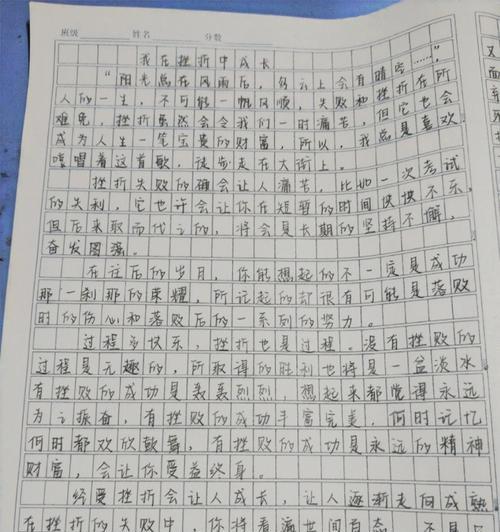 班级 姓名 分数
我在挫折中成长
“阳光总在风雨后,乌云上会有晴空……”
人的一生,不可能一帆风顺,失败和挫折在所
难免,挫折虽然会令我们一时痛苦,但它也会
成为人生一笔宝贵的财富,所以,我总是喜欢
哼唱着这首歌,徒步走在大街上。
挫折失败的确会让人痛苦,比如一次考试
的失利,它也许会让你在短暂的时间怏怏不乐,
但后来取而代之的,将会是长期的坚持不懈,
奋发图强。
在往后的岁月,你能想起的不一定是成功
那一刹那的荣耀,所记起的却很有可能是落败
时的伤心和落败后的一系列的努力。
过程多快乐,挫折也是过程。没有挫败的
过程是无趣的,所取得的胜利也将是一盆淡水
有挫败的成功是轰轰烈烈,想起来都觉得永远
为之振奋,有挫败的成功丰富完美,何时记忆
何时都欢欣鼓舞,有挫败的成功是永远的精神
财富,会让你受益终身。
经受挫折会让人成长,让人逐渐走向成熟
在挫折的失败中,你将看遍世间百态
又
面